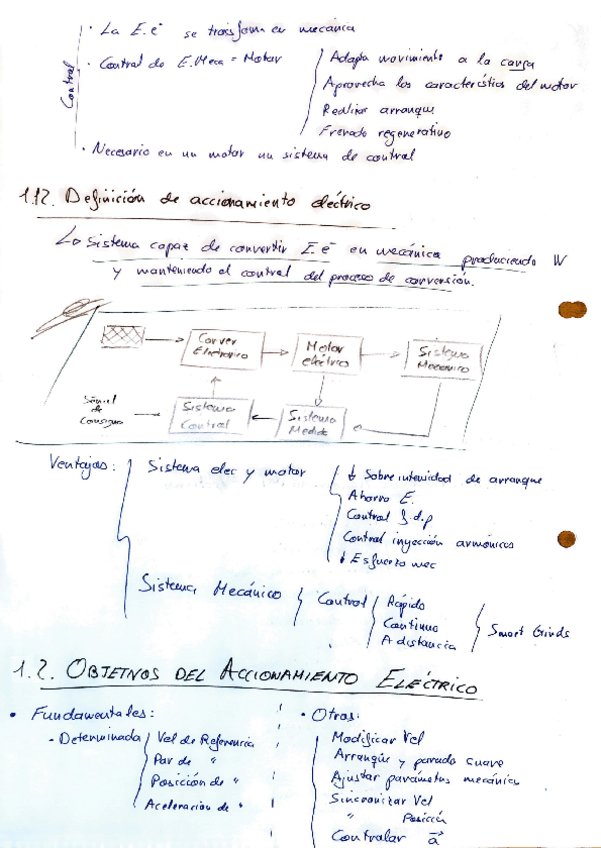 Control
· La E.e⁻ se transforma en mecánica
· Control de E.Meca = Motor
Adapta movimiento a la carga
Aprovecha las características del motor
Realizar arranque
Frenado regenerativo
· Necesario en un motor un sistema de control
1.12. Definición de accionamiento eléctrico
↳ Sistema capaz de convertir E.e⁻ en mecánica produciendo W
y manteniendo el control del proceso de conversión.
Conver
Electrónico
Motor
eléctrico
Sistema
Mecánico
Señal
de
Consigna
Sistema
Control
Sistema
Medida
Ventajas:
Sistema elec y motor
↓ Sobreintensidad de arranque
Ahorro E.
Control f.d.p
Control inyección armónicos
↓ Esfuerzo mec
Sistema Mecánico
Control
Rápido
Continuo
A distancia
Smart Grids
1.2. OBJETIVOS DEL ACCIONAMIENTO ELÉCTRICO
• Fundamentales:
- Determinada
Vel de Referencia
Par de "
Posición de "
Aceleración de "
• Otros:
Modificar Vel
Arranque y parada suave
Ajustar parámetros mecánica
Sincronizar Vel
" Posición
Controlar a⃗